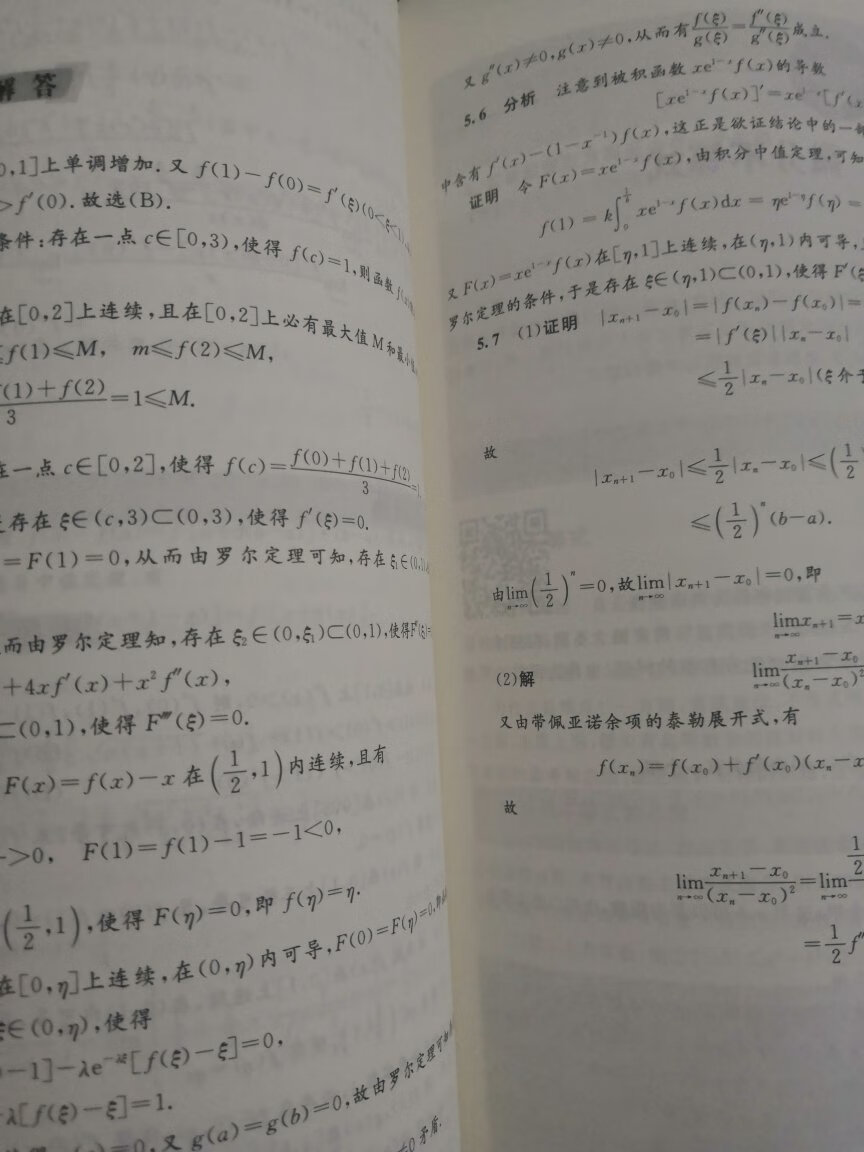 解答
0,1]上单调增加.又 f(1)-f(0)=f′(ξ)(0<ξ<1),
>f′(0).故选(B).
条件:存在一点 c∈[0,3),使得 f(c)=1,则函数
在[0,2]上连续,且在[0,2]上必有最大值 M 和最小值
f(1)≤M, m≤f(2)≤M,
f(1)+f(2)/3=1≤M.
在一点 c∈[0,2],使得 f(c)=(f(0)+f(1)+f(2))/3=1,
存在 ξ∈(c,3)⊂(0,3),使得 f′(ξ)=0.
=F(1)=0,从而由罗尔定理可知,存在 ξ₁∈(0,1)
而由罗尔定理知,存在 ξ₂∈(0,ξ₁)⊂(0,1),使得
+4xf′(x)+x²f″(x),
⊂(0,1),使得 F‴(ξ)=0.
F(x)=f(x)-x 在(1/2,1)内连续,且有
>0, F(1)=f(1)-1=-1<0,
(1/2,1),使得 F(η)=0,即 f(η)=η.
在[0,η]上连续,在(0,η)内可导,F(0)=F(η)=0,
ξ∈(0,η),使得
-1]-λe^{-λξ}[f(ξ)-ξ]=0,
λ[f(ξ)-ξ]=1.
=0,又 g(a)=g(b)=0,故由罗尔定理可知
≠0 矛盾.
又 g″(x)≠0,g(x)≠0,从而有 f(ξ)/g(ξ)=f″(ξ)/g″(ξ) 成立.
5.6 分析 注意到被积函数 xe^{1-x}f(x)的导数
[xe^{1-x}f(x)]′=xe^{1-x}[f′(x
中含有 f′(x)-(1-x⁻¹)f(x),这正是欲证结论中的一部
证明 令 F(x)=xe^{1-x}f(x),由积分中值定理,可知
f(1)=k∫₀^{1/k} xe^{1-x}f(x)dx=ηe^{1-η}f(η)=
又 F(x)=xe^{1-x}f(x)在[η,1]上连续,在(η,1)内可导,
罗尔定理的条件,于是存在 ξ∈(η,1)⊂(0,1),使得 F′(ξ
5.7 (1)证明 |xₙ₊₁-x₀|=|f(xₙ)-f(x₀)|=
=|f′(ξ)||xₙ-x₀|
≤1/2|xₙ-x₀|(ξ介于
故
|xₙ₊₁-x₀|≤1/2|xₙ-x₀|≤(1/2
≤(1/2)ⁿ(b-a).
由 lim_{n→∞}(1/2)ⁿ=0,故 lim_{n→∞}|xₙ₊₁-x₀|=0,即
lim_{n→∞}xₙ₊₁=x
(2)解
lim_{n→∞}(xₙ₊₁-x₀)/(xₙ-x₀)²
又由带佩亚诺余项的泰勒展开式,有
f(xₙ)=f(x₀)+f′(x₀)(xₙ-x
故
lim_{n→∞}(xₙ₊₁-x₀)/(xₙ-x₀)²=lim_{n→∞} 1/2
=1/2 f″